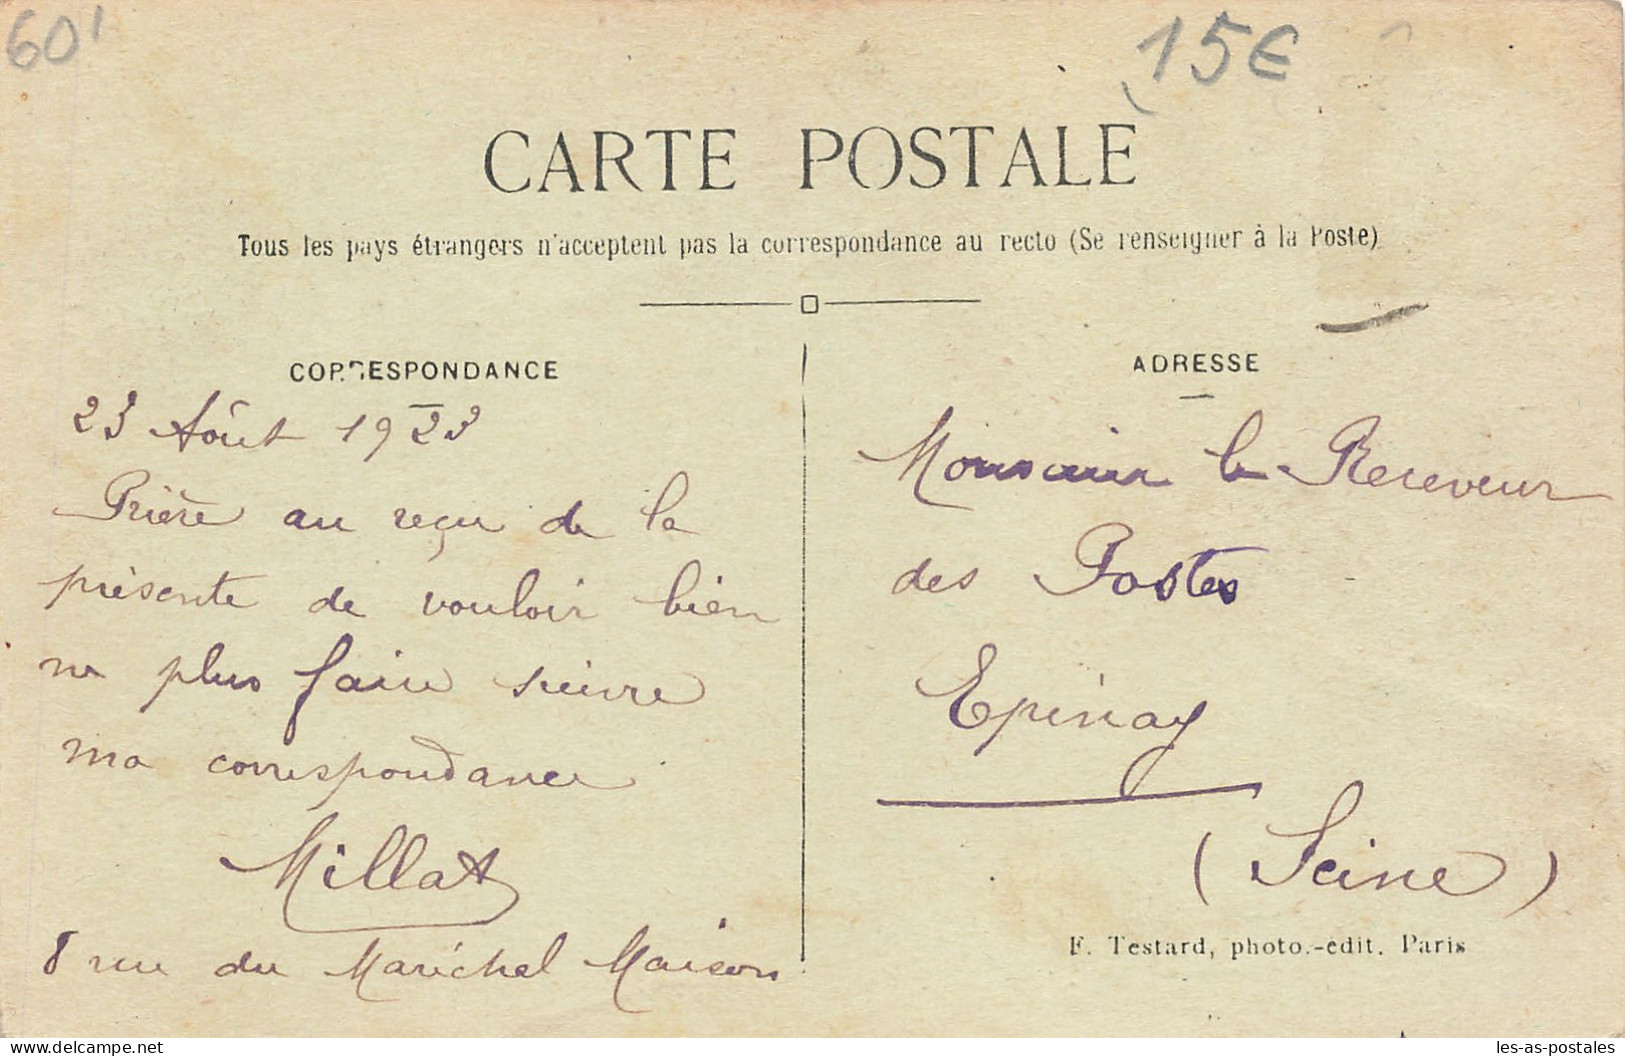 60'
15€
CARTE POSTALE
Tous les pays étrangers n'acceptent pas la correspondance au recto (Se renseigner à la Poste)
CORRESPONDANCE
23 Août 1923
Prière au reçu de la
présente de vouloir bien
ne plus faire suivre
ma correspondance
Millat
8 rue du Maréchal Maison
ADRESSE
Monsieur le Receveur
des Postes
Epinay
(Seine)
F. Testard, photo.-édit. Paris
les-as-postales
delcampe.net